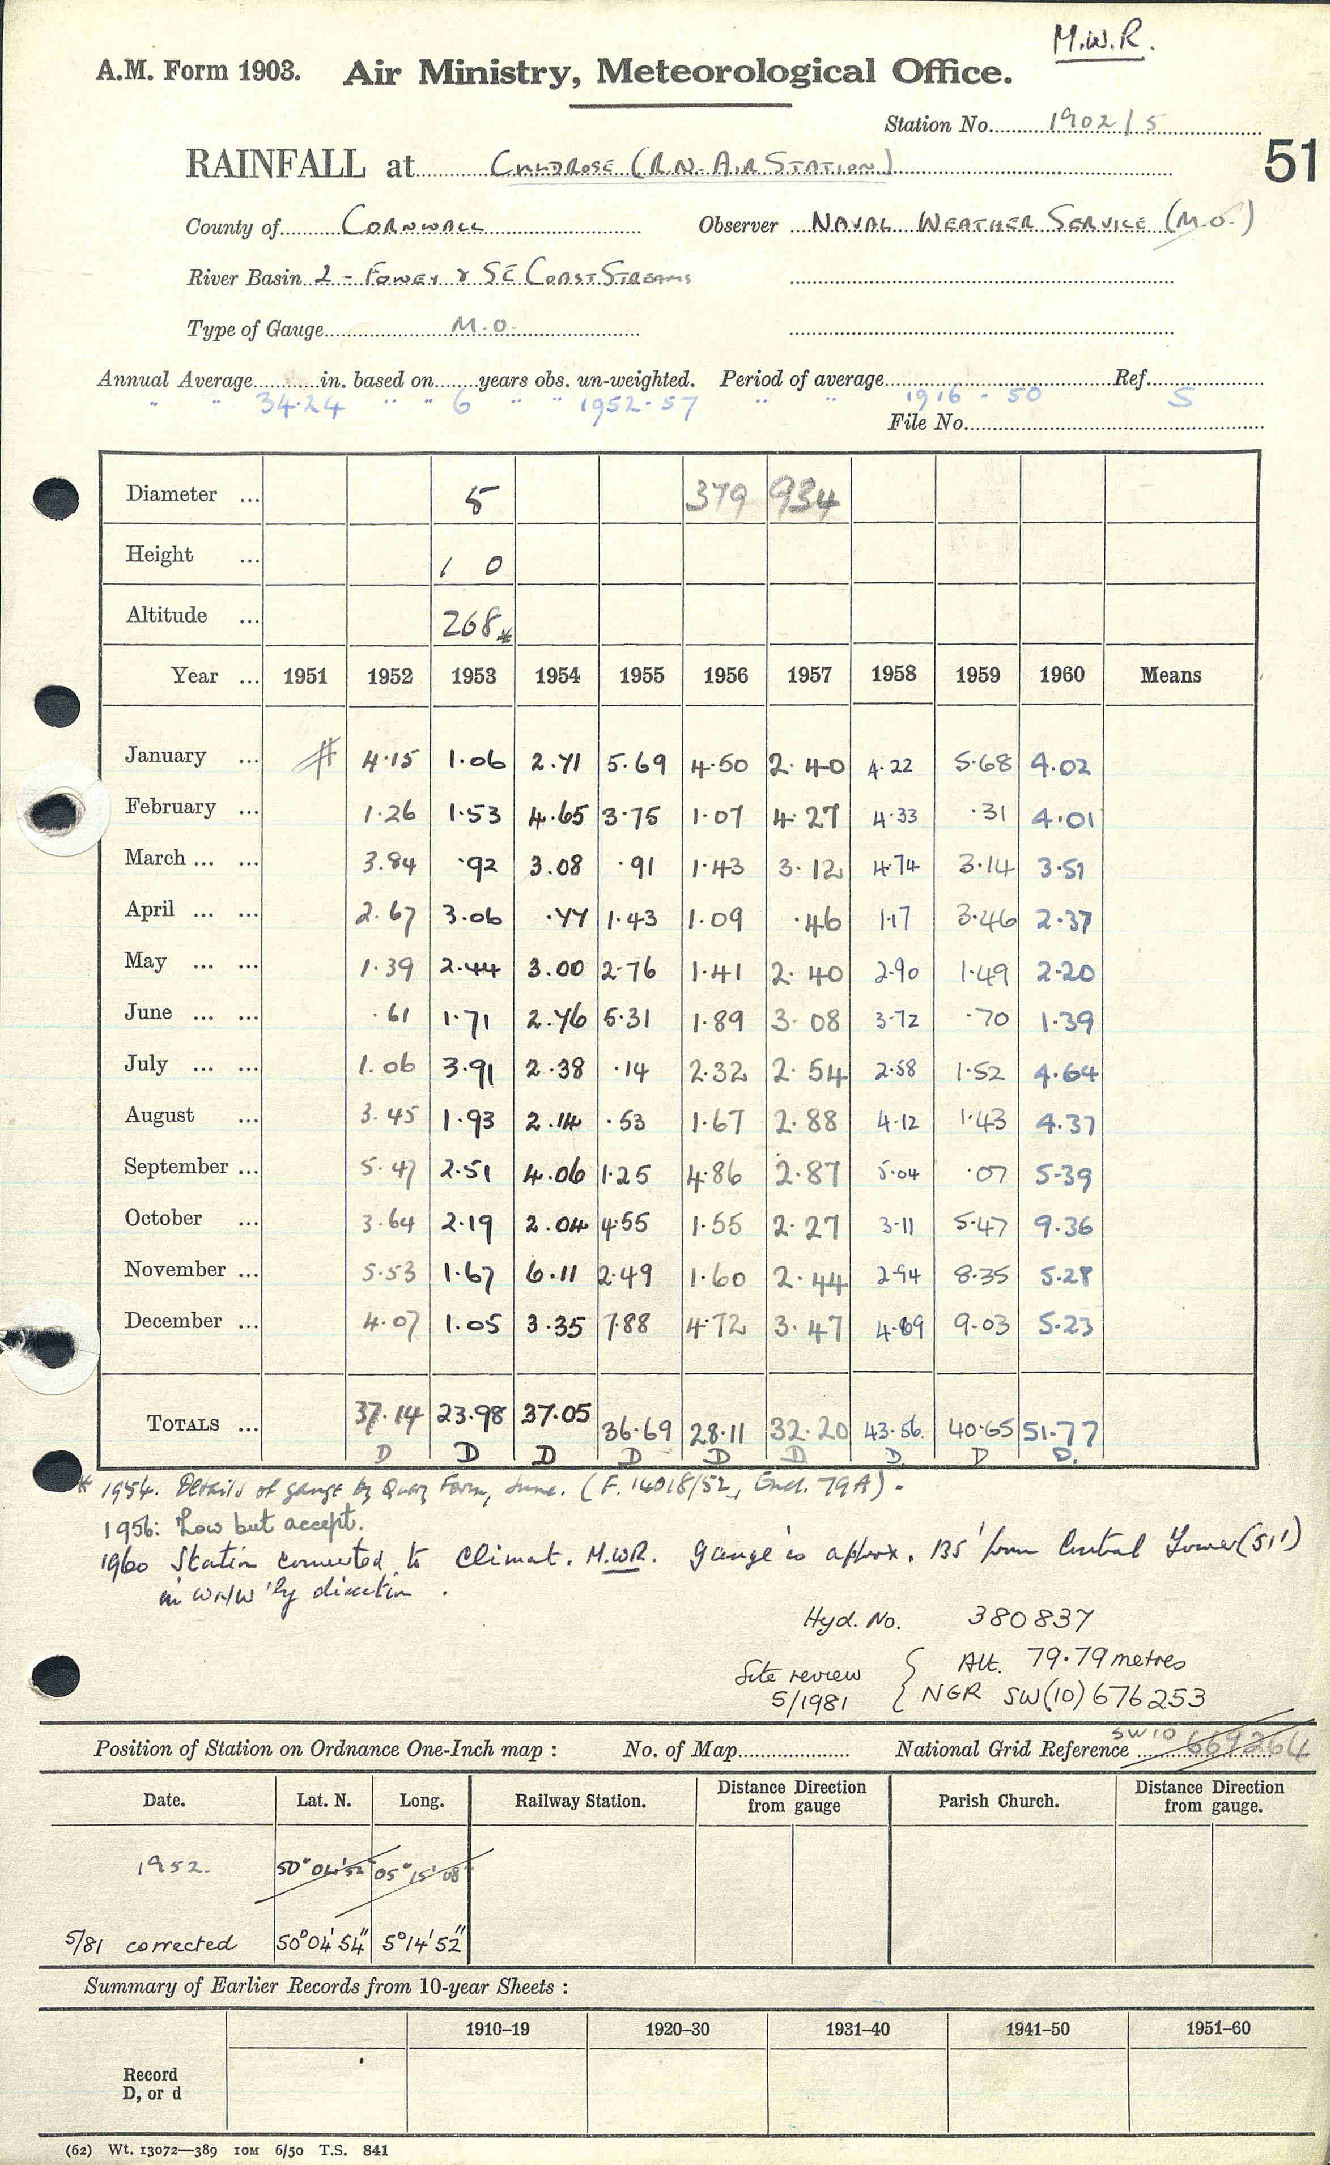 M.W.R.
A.M. Form 1903. Air Ministry, Meteorological Office.
Station No. 1902/5
51
RAINFALL at CULDROSE (R.N. AIR STATION)
County of CORNWALL Observer NAVAL WEATHER SERVICE (M.O.)
River Basin 2 - FOWEY & SE COAST STREAMS
Type of Gauge M.O.
Annual Average in. based on years obs. un-weighted. Period of average Ref.
" " 34.24 " " 6 " " 1952-57 " " 1916-50 S
File No.
Diameter ... 5 379 934
Height ... 1 0
Altitude ... 268*
Year ... 1951 1952 1953 1954 1955 1956 1957 1958 1959 1960 Means
January ... # 4.15 1.06 2.71 5.69 4.50 2.40 4.22 5.68 4.02
February ... 1.26 1.53 4.65 3.75 1.07 4.27 4.33 .31 4.01
March ... ... 3.84 .92 3.08 .91 1.43 3.12 4.74 3.14 3.51
April ... ... 2.67 3.06 .77 1.43 1.09 .46 1.17 3.46 2.37
May ... ... 1.39 2.44 3.00 2.76 1.41 2.40 2.90 1.49 2.20
June ... ... .61 1.71 2.76 5.31 1.89 3.08 3.72 .70 1.39
July ... ... 1.06 3.91 2.38 .14 2.32 2.54 2.58 1.52 4.64
August ... 3.45 1.93 2.14 .53 1.67 2.88 4.12 1.43 4.37
September ... 5.47 2.51 4.06 1.25 4.86 2.87 5.04 .07 5.39
October ... 3.64 2.19 2.04 4.55 1.55 2.27 3.11 5.47 9.36
November ... 5.53 1.67 6.11 2.49 1.60 2.44 2.94 8.35 5.28
December ... 4.07 1.05 3.35 7.88 4.72 3.47 4.69 9.03 5.23
TOTALS ... 37.14 23.98 37.05 36.69 28.11 32.20 43.56 40.65 51.77
D D D D D D D D D.
* 1954. Details of gauge by Query Form, June. (F.14018/52, Encl. 79A).
1956: Low but accept.
1960 Station converted to Climat. M.W.R. Gauge is approx. 135' from Control Tower (51')
in WNW'ly direction.
Hyd. No. 380837
Site review 5/1981 { Alt. 79.79 metres
NGR SW(10) 676253
Position of Station on Ordnance One-Inch map : No. of Map National Grid Reference SW10 669264
Date. Lat. N. Long. Railway Station. Distance Direction from gauge Parish Church. Distance Direction from gauge.
1952. 50° 04' 52" 05° 15' 08"
5/81 corrected 50° 04' 54" 5° 14' 52"
Summary of Earlier Records from 10-year Sheets :
1910–19 1920–30 1931–40 1941–50 1951–60
Record
D, or d
(62) Wt. 13072—389 10M 6/50 T.S. 841